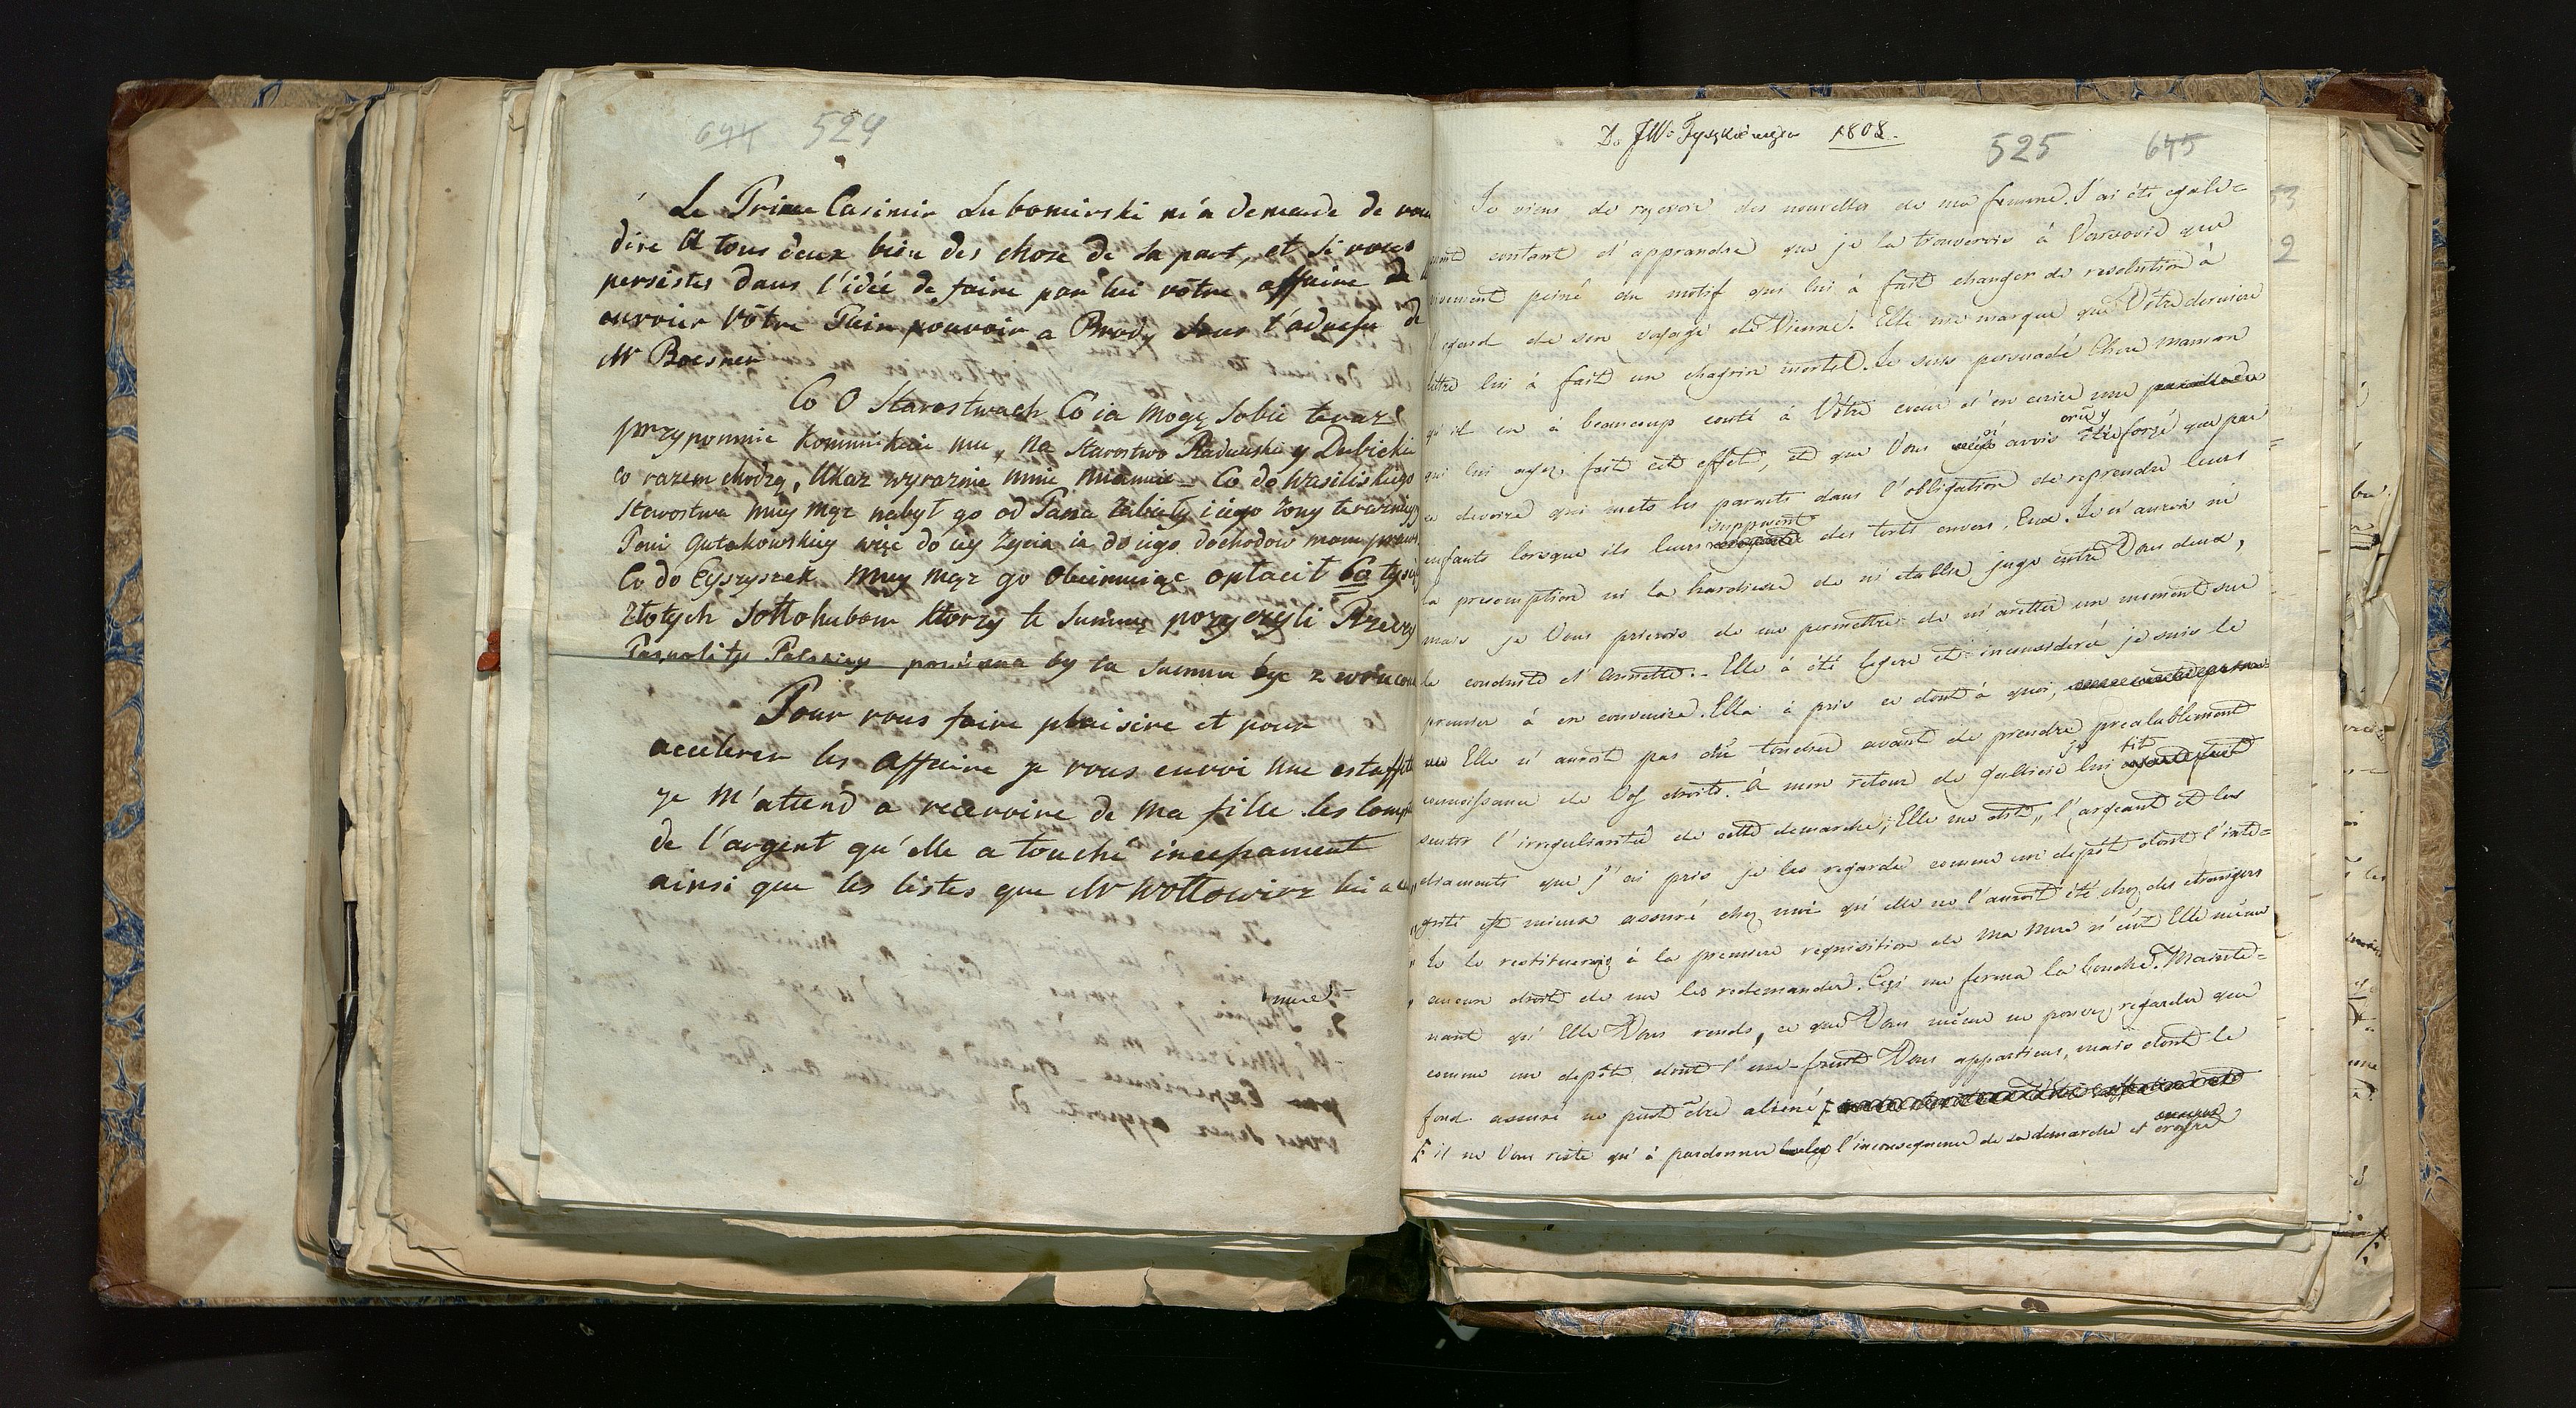 644 524
Le Prince Casimir Lubomirski m'a demande de vous
dire a tous deux bien des chose de sa part, et si vous
persistes dans l'idée de faire par lui vôtre affaire de
envoier Vôtre Plein pouvoir a Brody sous l'adresse de
Mr Boesner
Co O Starostwach Co ia mogę Sobie teraz
przypomnie kommunikuie mu, na Starostwo Raduński y Dubickie
co razem chodzą, Ukaz wyraznie mnie mianuie – Co do Wasiliskiego
Starostwa muy mąz nabył go od Pana Zabiełły i iego Zony terazniey
Pani Gutakowskiey więc do iey Zycia ia do iego dochodow mam prawo
Co do Eyszyszek muy mąz go Obeimuiąc opłacił 60 tysi
złotych Sołłohubom ktorzy te Summę pozyczyli Rzeczy
Pospolitey Polskiey powinna by ta Summa byc zwrucona
Pour vous faire plaisire et pour
accelerer les affaire je vous envoi une estaffette
je m'attend a recevoire de ma fille les compte
de l'argent qu'elle a touché incessament
ainsi que les listes que Mr Wollowicz lui a
Do JW. Tyszkiewiczow 1808.
525 645
Je viens de reçevoir des nouvelles de ma femme. J'ai été égale=
ment contant d'apprendre que je la trouverois à Varsovie que
vivement peiné du motif qui lui à fait changer de resolution à
l'egard de son voyage de Vienne. Elle me marque que Vôtre derniere
lettre lui à fait un chagrin mortel. Je suis persuadé Chere Maman
qu'il en à beaucoup couté à Vôtre coeur d'en ecrire une
qui lui ayez fait cet effet, et que Vous avois été forçé que par
ce devoire qui mets les parents dans l'obligation de reprendre leurs
enfants lorsque ils leurs supposent des torts envers Eux. Je n'aurois ni
la presomption ni la hardiesse de m'etablir juge entre Vous deux,
mais je Vous prierois de me permettre de m'aretter un moment sur
la conduite d'Annette. – Elle à été legere et inconsiderée je suis le
premier à en convenire. Elle à pris ce dont à quoi,
Elle n'auroit pas dû toucher avant de prendre prealablement
connoissance de Vos droits. À mon retour de Gallicie je lui fit
sentir l'irregularité de cette demarche; Elle me dit, „l'argeant et les
diamants que j'ai pris je les regarde comme un depôt dont l'inte=
„grité est mieux assuré chez moi qu'elle ne l'auroit été chez des etrangers
„Je le restituerois à la premiere requisition de Ma Mere n'eut Elle même
„aucun droit de me les redemander. Ceçi me ferma la bouche. Mainte=
nant qu'Elle Vous rends, ce que Vous même ne pouvez regarder que
comme un depôt dont l'usu-fruit Vous appartiens, mais dont le
fond assuré ne peut être aliené
il ne Vous reste qu'à pardonner l'inconsequence de sa demarche et